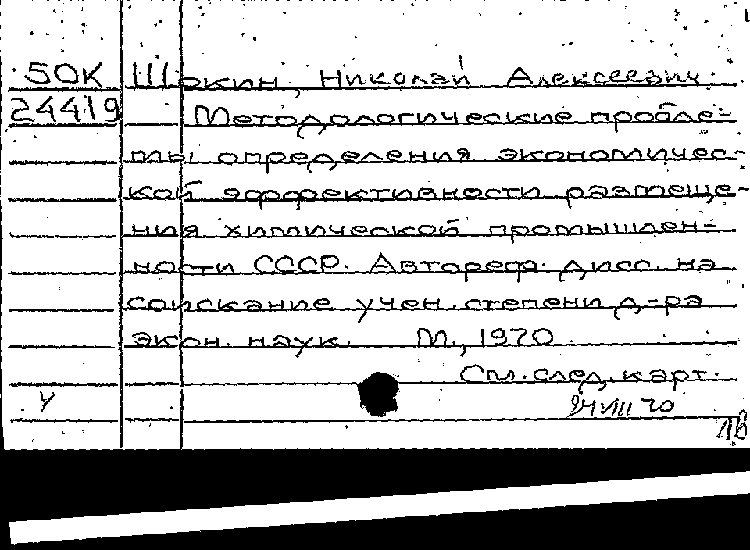 50К Шокин, Николай Алексеевич.
24419 Методологические пробле-
мы определения экономичес-
кой эффективности размеще-
ния химической промышлен-
ности СССР. Автореф. дисс. на
соискание учен. степени д-ра
экон. наук. М., 1970
См. след. карт.
У 24 VIII 70